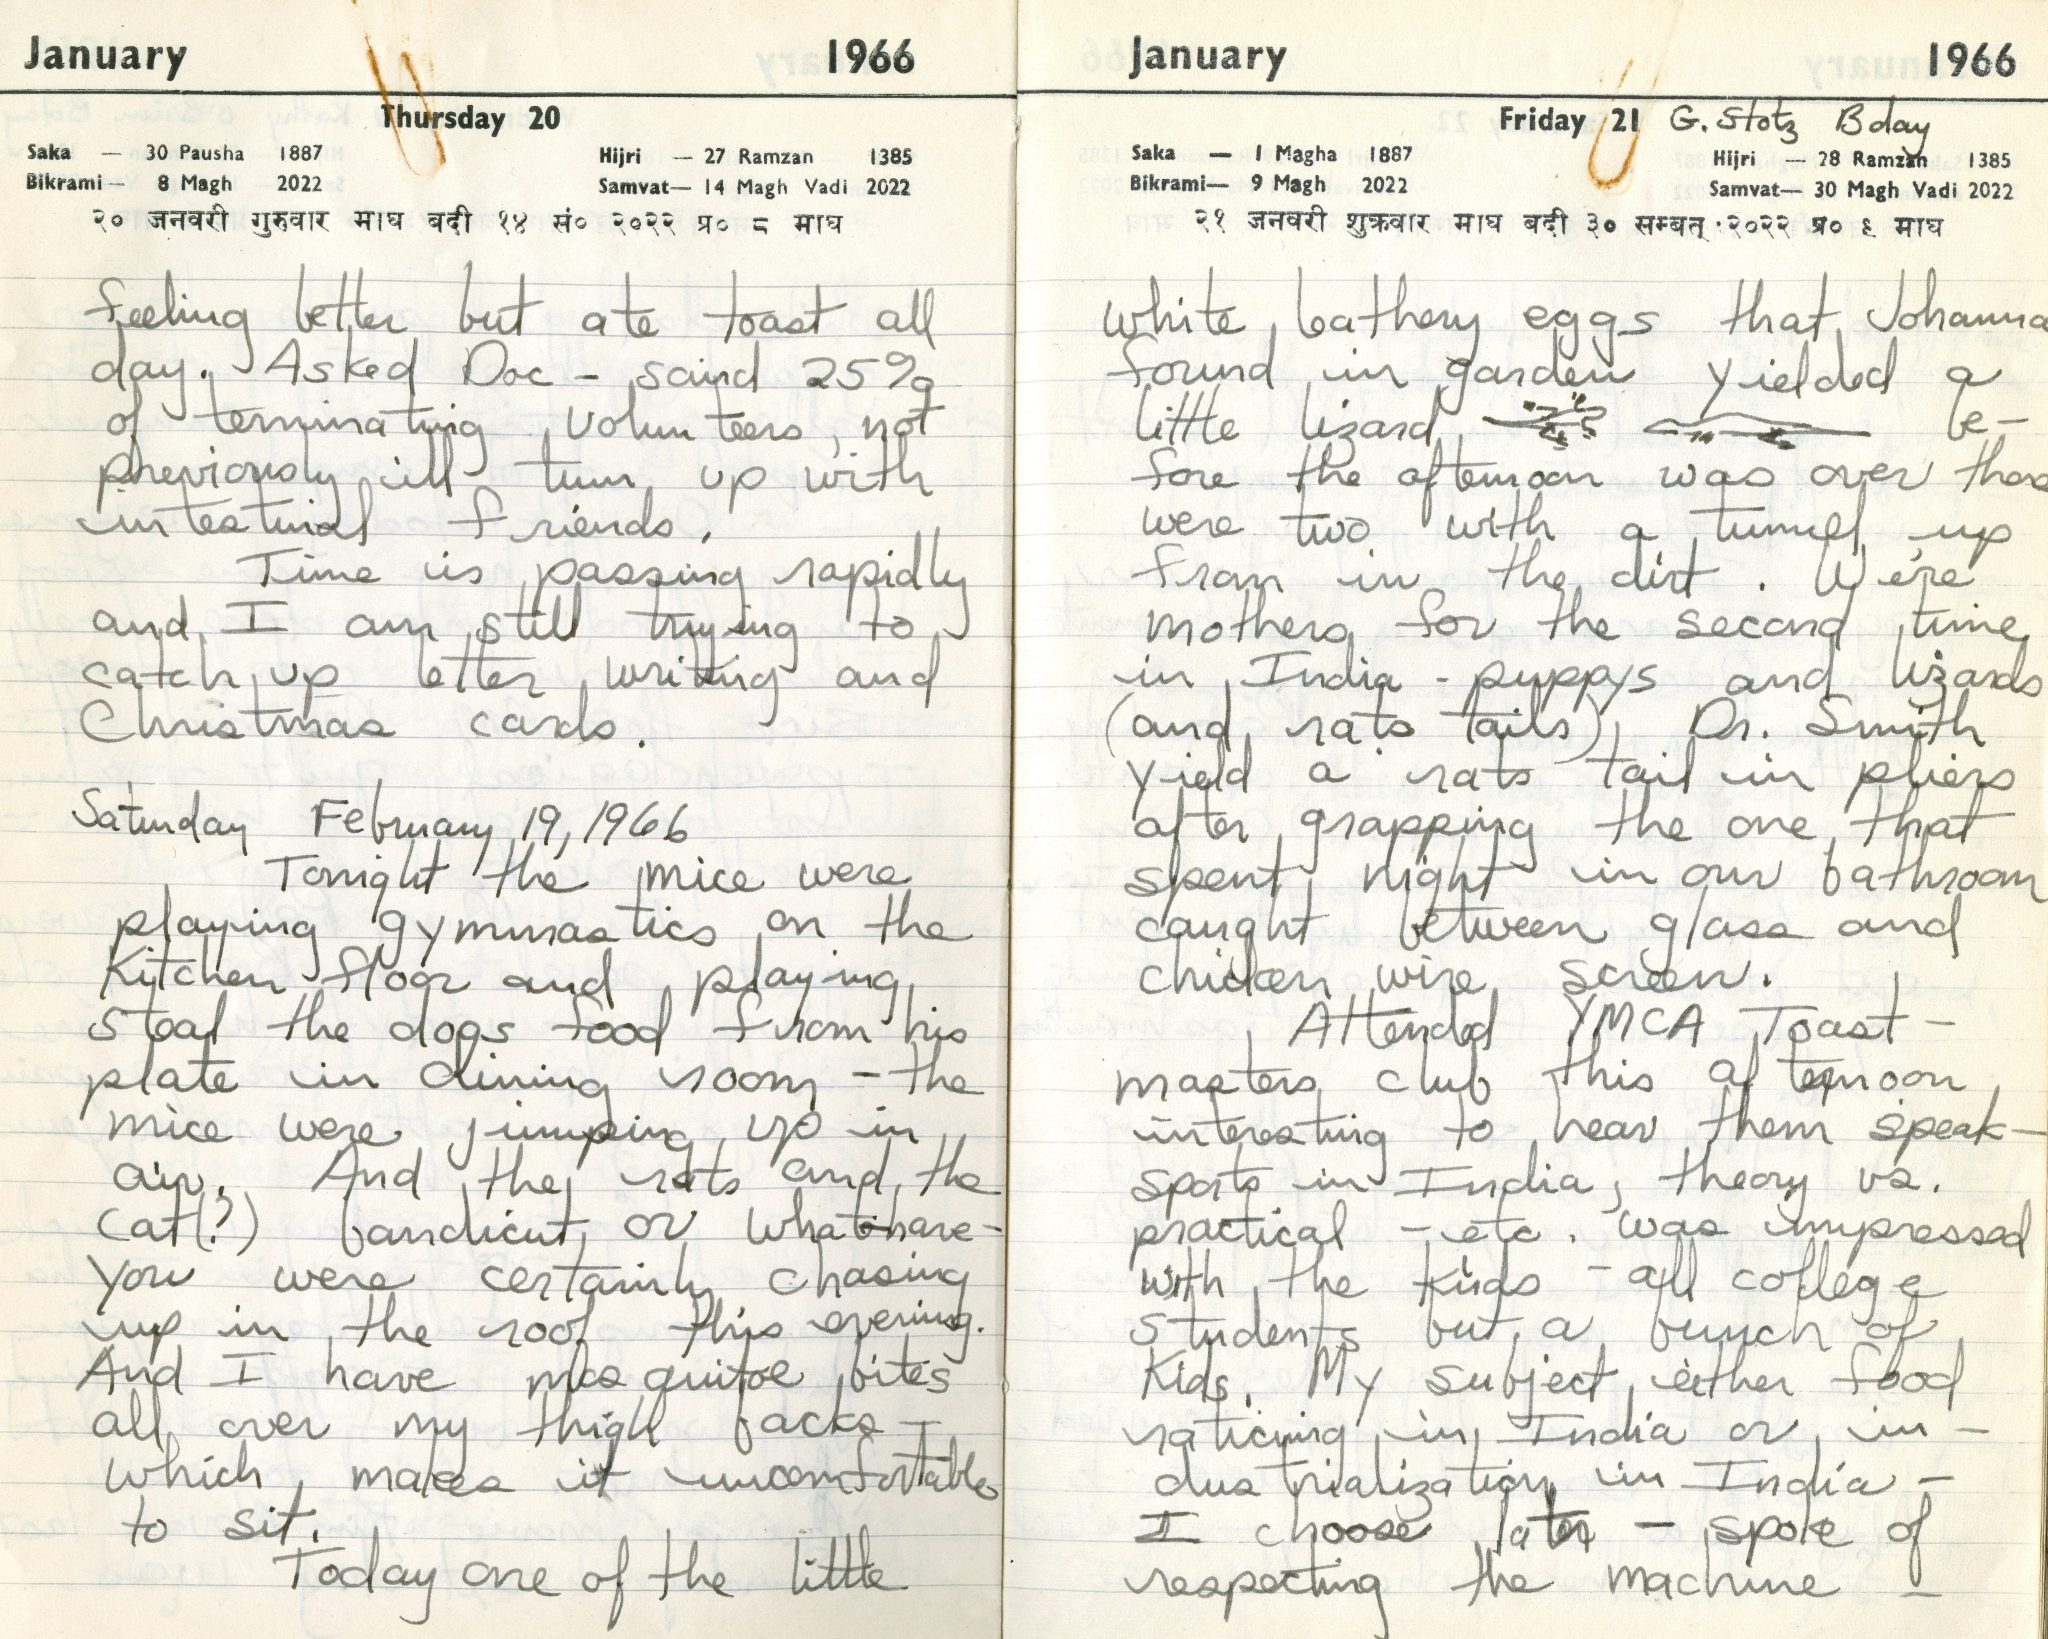 January 1966
Thursday 20
Saka — 30 Pausha 1887 Hijri — 27 Ramzan 1385
Bikrami— 8 Magh 2022 Samvat— 14 Magh Vadi 2022
२० जनवरी गुरुवार माघ बदी १४ सं० २०२२ प्र० ८ माघ
feeling better but ate toast all
day. Asked Doc - said 25%
of terminating volunteers, not
previously ill turn up with
intestinal friends.
Time is passing rapidly
and I am still trying to
catch up letter writing and
Christmas cards.
Saturday February 19, 1966
Tonight the mice were
playing gymnastics on the
Kitchen floor and playing
steal the dogs food from his
plate in dining room - the
mice were jumping up in
air. And the rats and the
cat(?) bandicut or what have-
you were certainly chasing
up in the roof this evening.
And I have mosquitoe bites
all over my thigh backs -
which makes it uncomfortable
to sit.
Today one of the little
January 1966
Friday 21 G. Stotz Bday
Saka — 1 Magha 1887 Hijri — 28 Ramzan 1385
Bikrami— 9 Magh 2022 Samvat— 30 Magh Vadi 2022
२१ जनवरी शुक्रवार माघ बदी ३० सम्बत् २०२२ प्र० ९ माघ
white leathery eggs that Johanna
found in garden yielded a
little lizard be-
fore the afternoon was over there
were two with a tunnel up
from in the dirt. We're
mothers for the second time
in India - puppys and lizards
(and rats tails). Dr. Smith
yield a rats tail in pliers
after grapping the one that
spent night in our bathroom
caught between glass and
chicken wire screen.
Attended YMCA Toast-
masters club this afternoon
interesting to hear them speak -
sports in India, theory vs.
practical - etc. was impressed
with the kids - all college
students but a bunch of
Kids. My subject either food
rationing in India or in-
dustrialization in India -
I choose later - spoke of
respecting the machine -